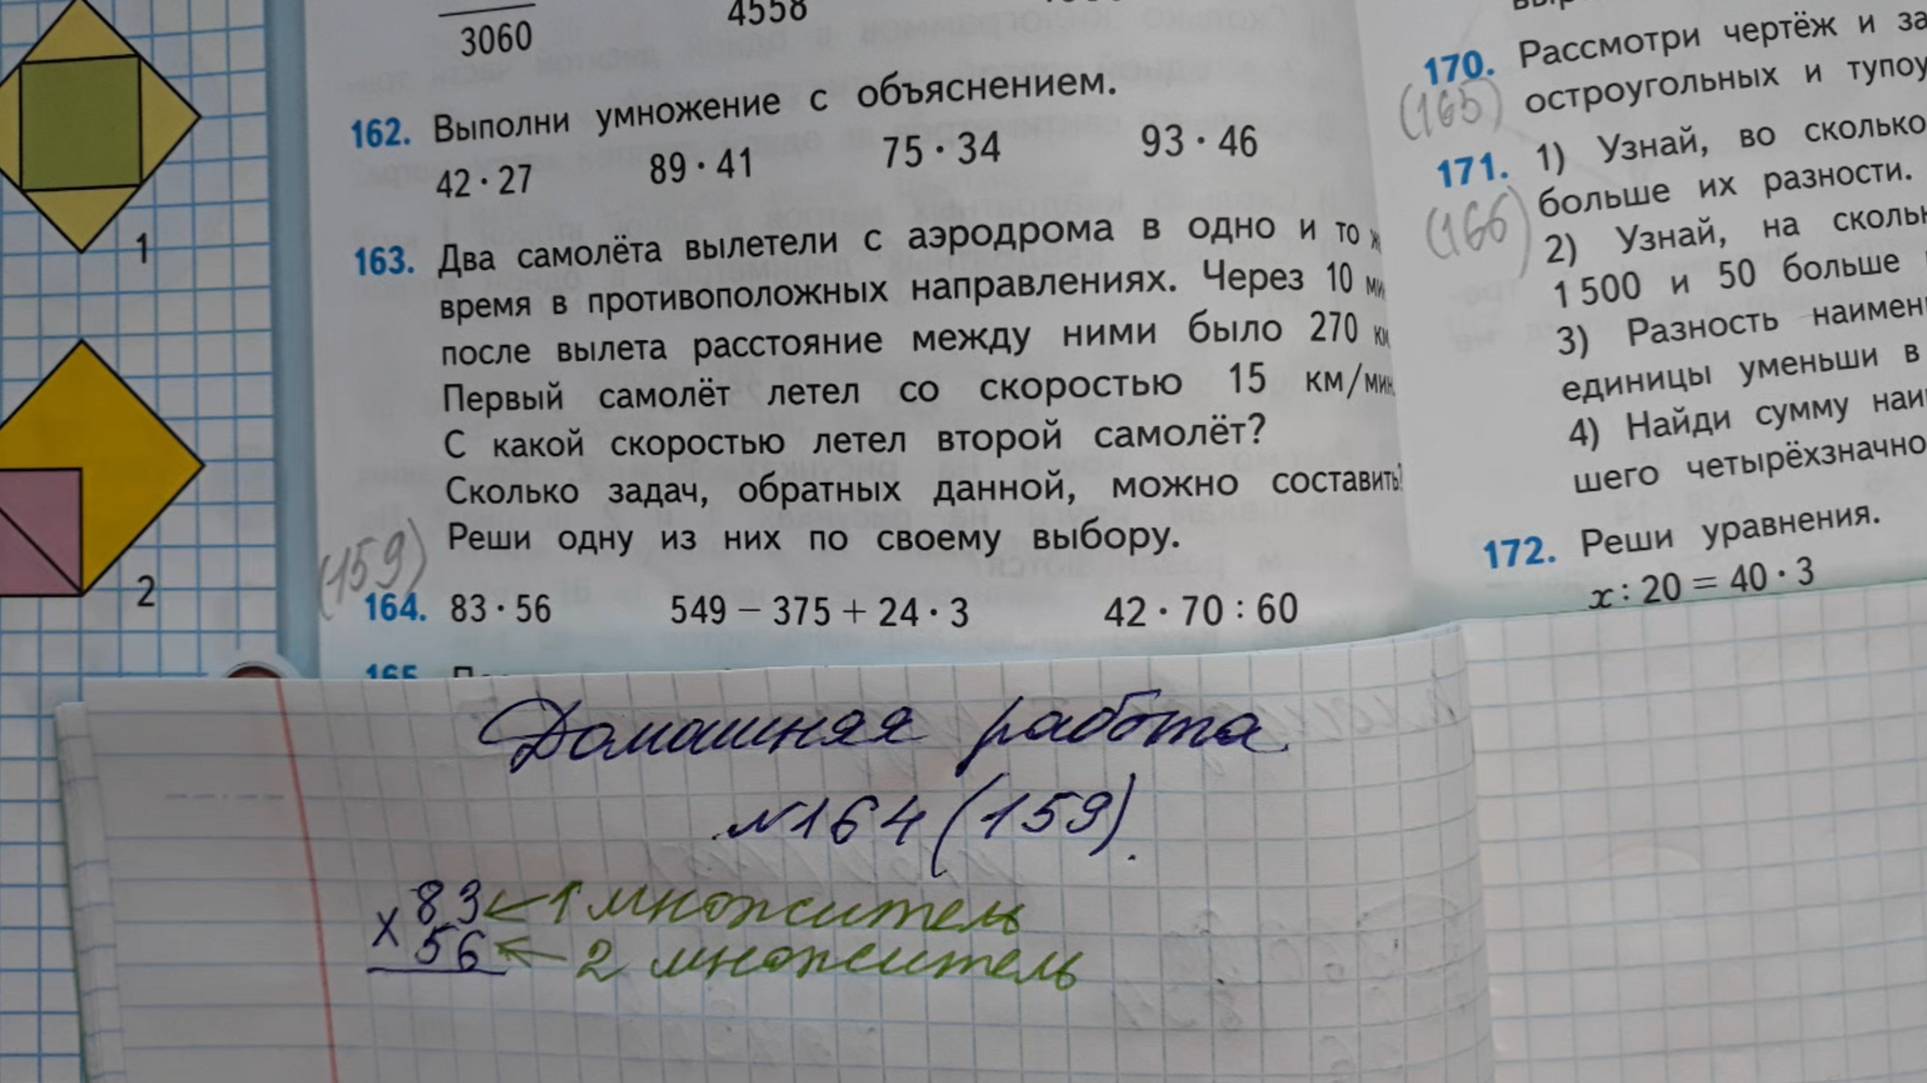 3060
4558
162. Выполни умножение с объяснением.
42 · 27 89 · 41 75 · 34 93 · 46
163. Два самолёта вылетели с аэродрома в одно и то ж
время в противоположных направлениях. Через 10 ми
после вылета расстояние между ними было 270 км
Первый самолёт летел со скоростью 15 км/мин.
С какой скоростью летел второй самолёт?
Сколько задач, обратных данной, можно составить?
Реши одну из них по своему выбору.
(159)
164. 83 · 56 549 − 375 + 24 · 3 42 · 70 : 60
165.
1
2
170. Рассмотри чертёж и за
(165) остроугольных и тупоу
171. 1) Узнай, во сколько
(166) больше их разности.
2) Узнай, на скольк
1 500 и 50 больше
3) Разность наимен
единицы уменьши в
4) Найди сумму наи
шего четырёхзначно
172. Реши уравнения.
x : 20 = 40 · 3
Домашняя работа
№164 (159).
× 83 ← 1 множитель
56 ← 2 множитель